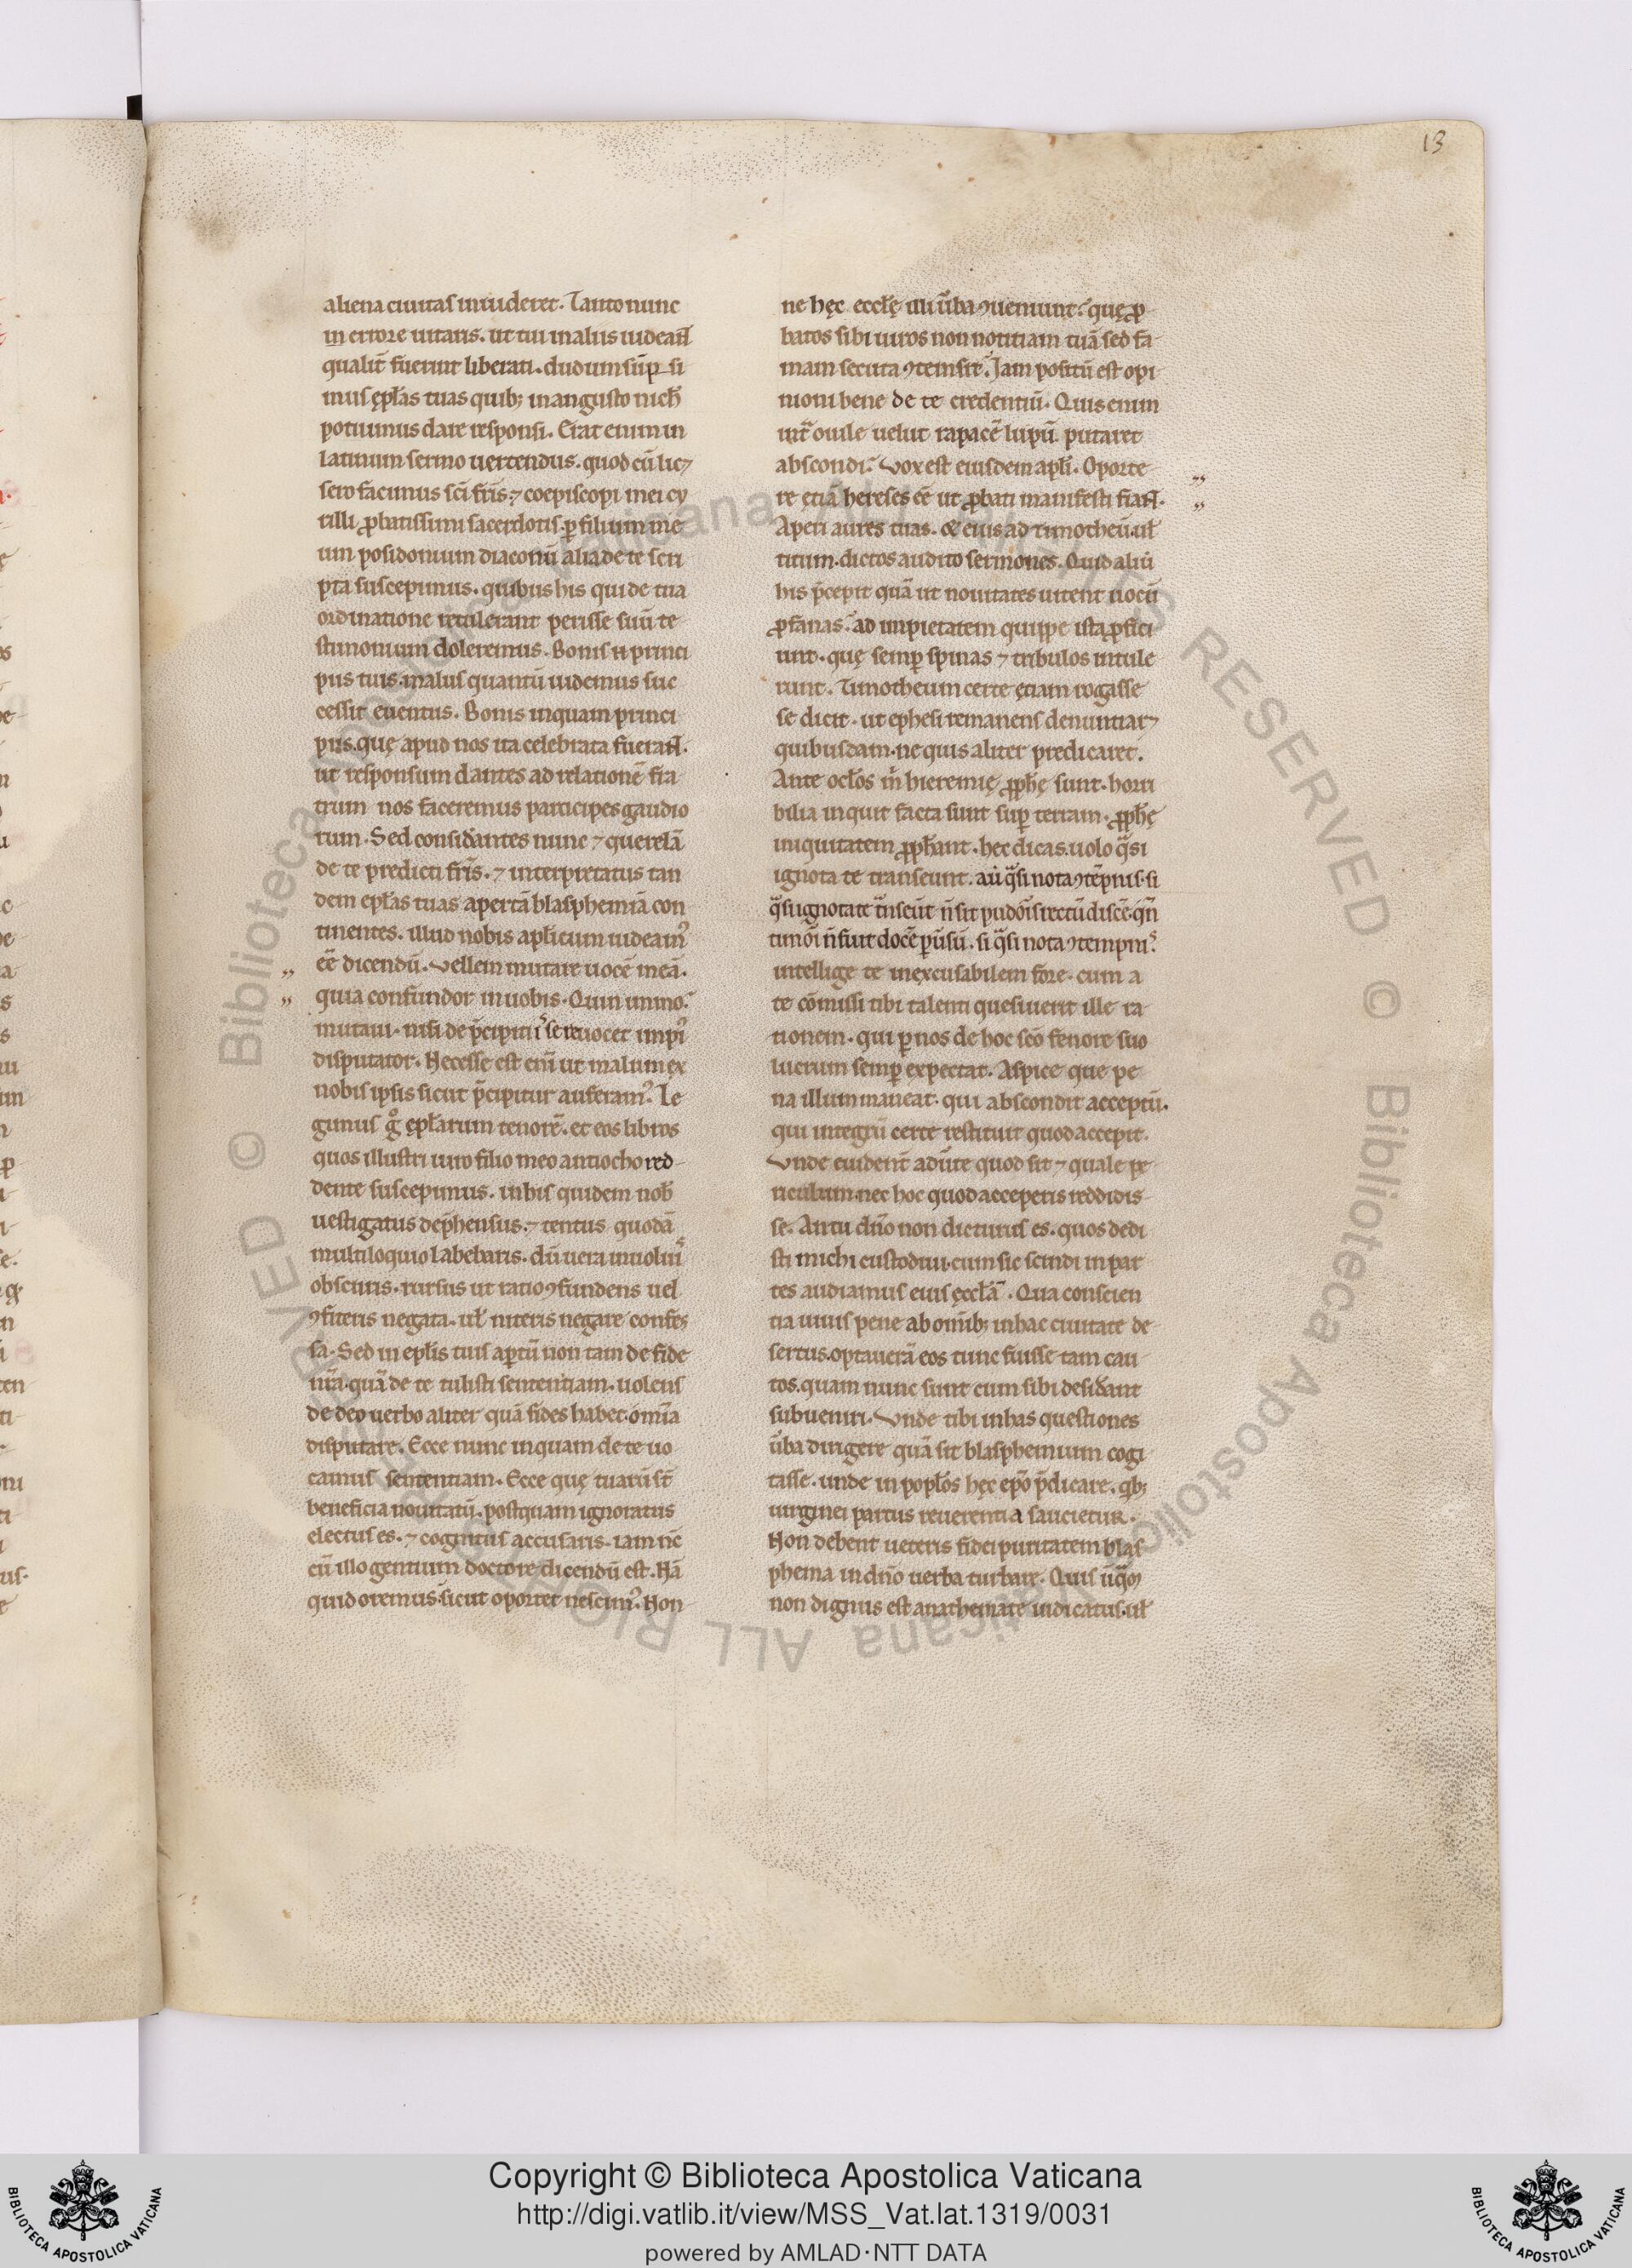 13
aliena ciuitas inuideret. Tanto nunc
in errore uitaris. ut tui malus iudeant̄
qualit̄ fuerint liberati. dudum sūp si
mus ępl̄as tuas quib; in angusto nich̄
potuimus dare responsi. Erat enim in
latinum sermo uertendus. quod cū lic&
sero facimus sc̄i fr̄is. ⁊ coepiscopi mei cy
rilli ꝓbatissimi sacerdotis. ꝑ filium me
um posidonium diaconū alia de te scri
pta suscepimus. quibus his qui de tua
ordinatione retulerant perisse suū te
stimonium doleremus. Bonis n̄ princi
piis tuis malus quantū uidemus suc
cessit euentus. Bonis inquam princi
piis. quę apud nos ita celebrata fuerant̄.
ut responsum dantes ad relationē fra
trum nos faceremus participes gaudio
rum. Sed considantes nunc ⁊ querelā
de te predicti fr̄is. ⁊ interpretatas tan
dem epl̄as tuas apertā blasphemiā con
tinentes. illud nobis apl̄icum uideam᾽
eē dicendū. Vellem mutare uocē meā.
quia confundor in uobis. Quin immo
mutaui. nisi de p̄cipitii se reuocet impi᾽
disputator. Necesse est eni̅ ut malum ex
nobis ipsis sicut p̄cipitur auferam᾽. Le
gimus gͦ ępl̄arum tenorē. et eos libros
quos illustri uiro filio meo antiocho red
dente suscepimus. in his quidem nob̄
uestigatus dep̄hensus. ⁊ tentus quodā
multiloquio labebaris. dū uera inuoluis
obscuris. rursus utratio ꝯfundens uel
ꝯfiteris negata. ul̄ niteris negare confes
sa. Sed in epl̄is tuis aꝑtū non tam de fide
nr̄a. quā de te tulisti sententiam. uolens
de deo uerbo aliter quā fides habet om̄ia
disputare. Ecce nunc inquam de te uo
camus sententiam. Ecce quę tuarū st̄
beneficia nouitatū. postquam ignoratus
electus es. ⁊ cognitus accusaris. iam nc̄
cū illo gentium doctore dicendū est. Nā
quid oremus sicut oportet nescim᾽. Non
ne hęc eccl̄ę illi ūba ꝯueniunt? quę ꝓ
batos sibi uiros non notitiam tuā sed fa
mam secuta ꝯtemsit? Jam positū est opi
nioni bene de te credentiū. Quis enim
int̄ ouile uelut rapacē lupū putaret
abscondi? Vox est eiusdem apl̄i. Oporte
re ętiā hereses eē ut ꝓbati manifesti fiant̄.
Aperi aures tuas. & eius ad timotheū. ul̄
titum. dictos audito sermones. Quid aliū
his p̄cepit quā ut nouitates uitent uocū
ꝓfanas? ad impietatem quippe ista ꝓfici
unt. quę semꝑ spinas ⁊ tribulos intule
runt. Timotheum certe ętiam rogasse
se dicit. ut ephesi remanens denuntiar&
quibusdam. ne quis aliter predicaret.
Ante ocl̄os m̄ hieremię ꝓph̄ę sunt. horri
bilia inquit facta sunt suꝑ terram. ꝓph̄ę
iniquitatem ꝓph̄ant. hęc dicas. uolo q̄si
ignota te transeunt. aū q̄si nota ꝯtēpnis. si
q̄si ignota te t̄nseūt n̄ sit pudōis rectū discē. qn̄
timōi n̄ fuit docē ꝑūsū. si q̄si nota ꝯtempnis.
intellige te inęxcusabilem fore. cum a
te cōmissi tibi talenti quesiuerit ille ra
tionem. qui ꝑ nos de hoc sc̄o fenore suo
lucrum semꝑ expectat. Aspice que pe
na illum maneat. qui abscondit acceptū.
qui integrū certe restituit quod accepit.
Vnde euident̄ adūte quod sit ⁊ quale pe
riculum. nec hoc quod acceperis reddidis
se. An tu dn̄o non dicturus es. quos dedi
sti michi custodiui. cum sic scindi in par
tes audiamus eius ęccl̄ā. Qua conscien
tia uiuis pene ab omīb; in hac ciuitate de
sertus. optauerā eos tunc fuisse tam cau
tos. quam nunc sunt cum sibi desidant
subueniri. Vnde tibi in has questiones
ūba dirigere quā sit blasphemium cogi
tasse. unde in popl̄os hęc ep̄o p̄dicare. qb;
uirginei partus reuerentia saucietur.
Non debent ueteris fidei puritatem blas
phema in dn̄o uerba turbare. Quis ūqā
non dignus est anathemate iudicatus. ul̄
Copyright © Biblioteca Apostolica Vaticana
http://digi.vatlib.it/view/MSS_Vat.lat.1319/0031
powered by AMLAD·NTT DATA
BIBLIOTECA APOSTOLICA VATICANA
BIBLIOTECA APOSTOLICA VATICANA